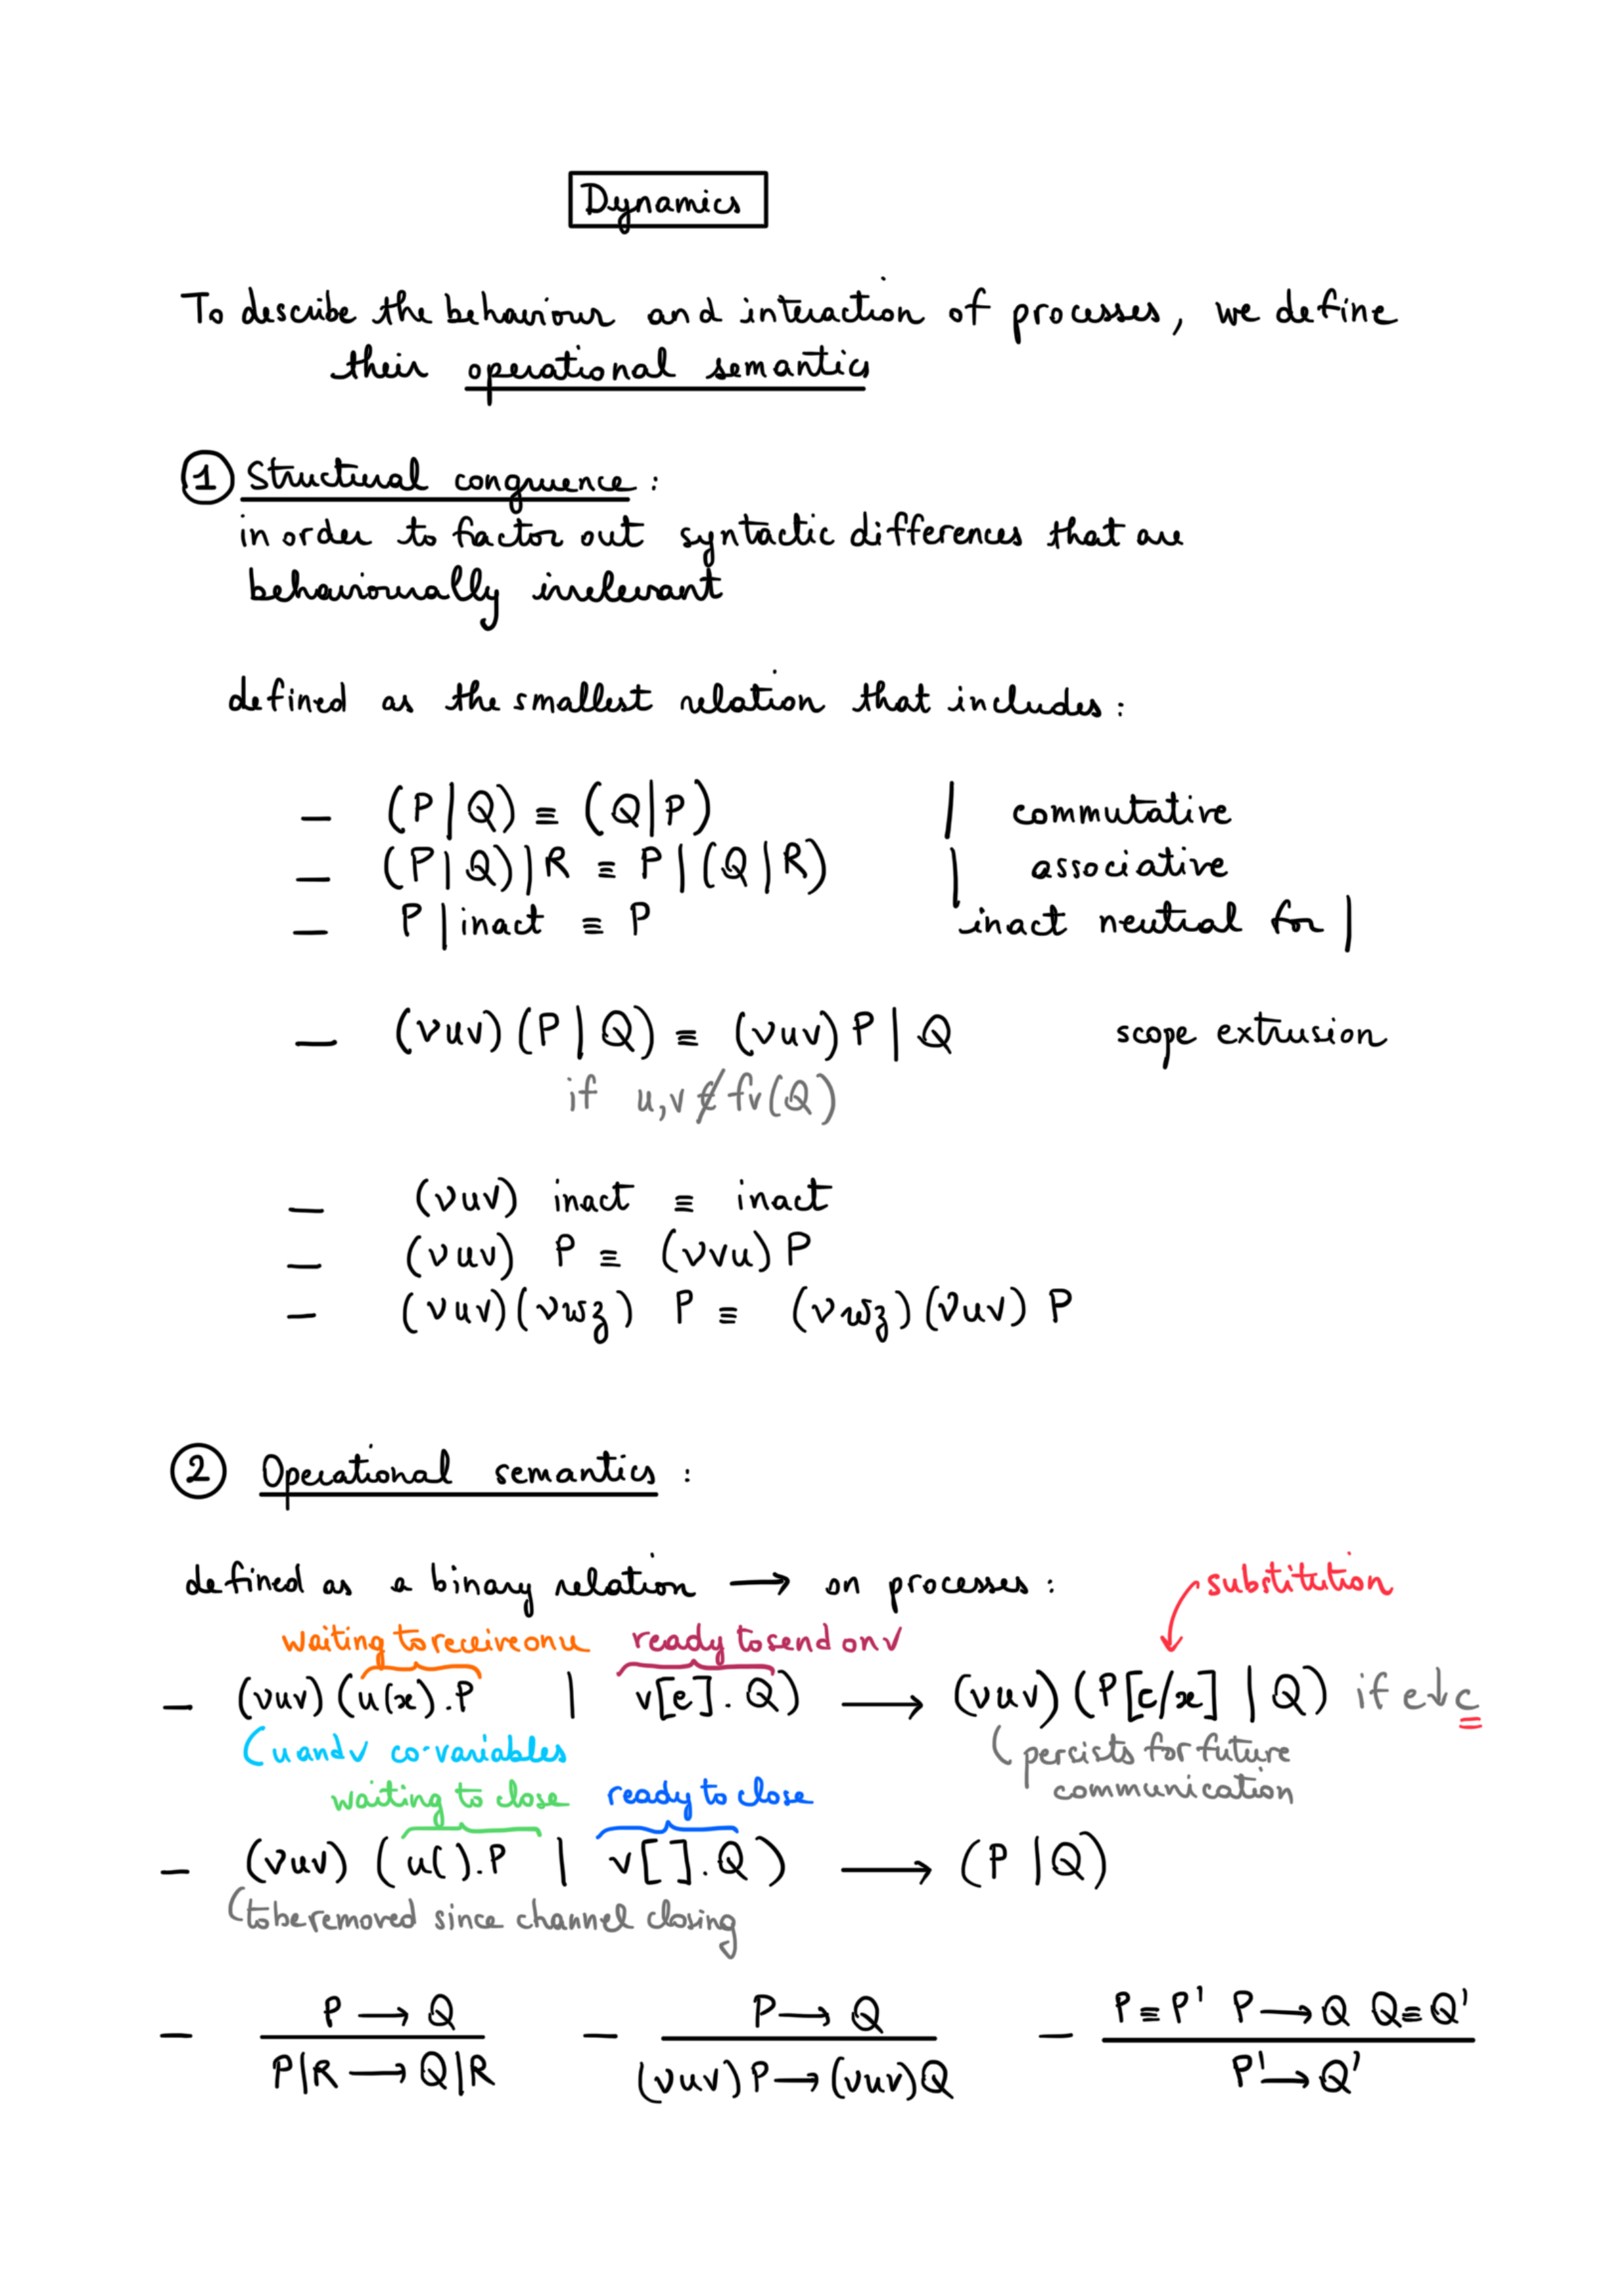 Dynamics
To describe the behaviour and interaction of processes, we define
their operational semantics
① Structural congruence :
in order to factor out syntactic differences that are
behaviourally irrelevant
defined as the smallest relation that includes :
— (P | Q) ≡ (Q | P) | commutative
— (P | Q) | R ≡ P | (Q | R) | associative
— P | inact ≡ P inact neutral for |
— (νuv) (P | Q) ≡ (νuv) P | Q scope extrusion
if u,v ∉ fv(Q)
— (νuv) inact ≡ inact
— (νuv) P ≡ (νvu) P
— (νuv)(νwz) P ≡ (νwz)(νuv) P
② Operational semantics :
defined as a binary relation → on processes :
substitution
waiting to receive on u ready to send on v
— (νuv) (u(x).P | v[e].Q) → (νuv) (P[c/x] | Q) if e↓c
(u and v co-variables
(persists for future
communication
waiting to close ready to close
— (νuv) (u().P | v[].Q) → (P | Q)
(to be removed since channel closing
— P → Q — P → Q — P ≡ P' P → Q Q ≡ Q'
P|R → Q|R (νuv) P → (νuv) Q P' → Q'